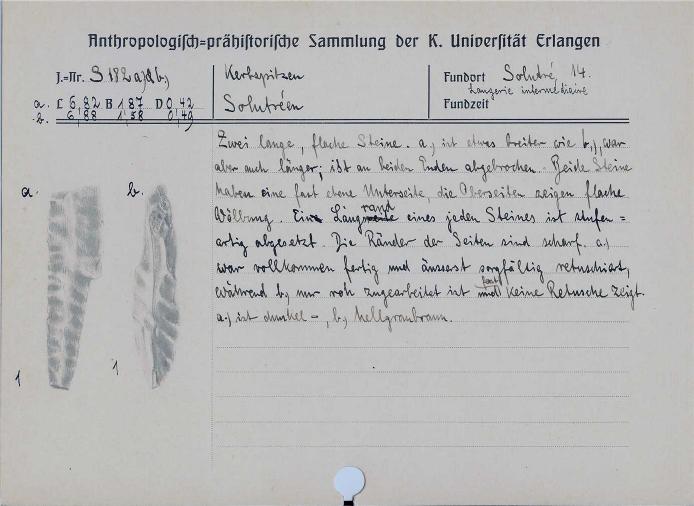 Anthropologisch=prähistorische Sammlung der K. Universität Erlangen
J.=Nr. S 182 a) & b)
a. L 6,82 B 1,87 D 0,42
b. 6,88 1,58 0,49
Kerbspitzen
Solutréen
Fundort Solutré, 14.
Laugerie intermédiaire
Fundzeit
Zwei lange, flache Steine. a.) ist etwas breiter wie b.), war
aber auch länger; ist an beiden Enden abgebrochen. Beide Steine
haben eine fast ebene Unterseite, die Oberseiten zeigen flache
Wölbung. Ein Längsrand eines jeden Steines ist stufen=
artig abgesetzt. Die Ränder der Seiten sind scharf. a.)
war vollkommen fertig und äusserst sorgfältig retuschiert,
während b.) nur roh zugearbeitet ist und fast keine Retusche zeigt.
a.) ist dunkel-, b.) hellgraubraun.
a.
b.
1
1